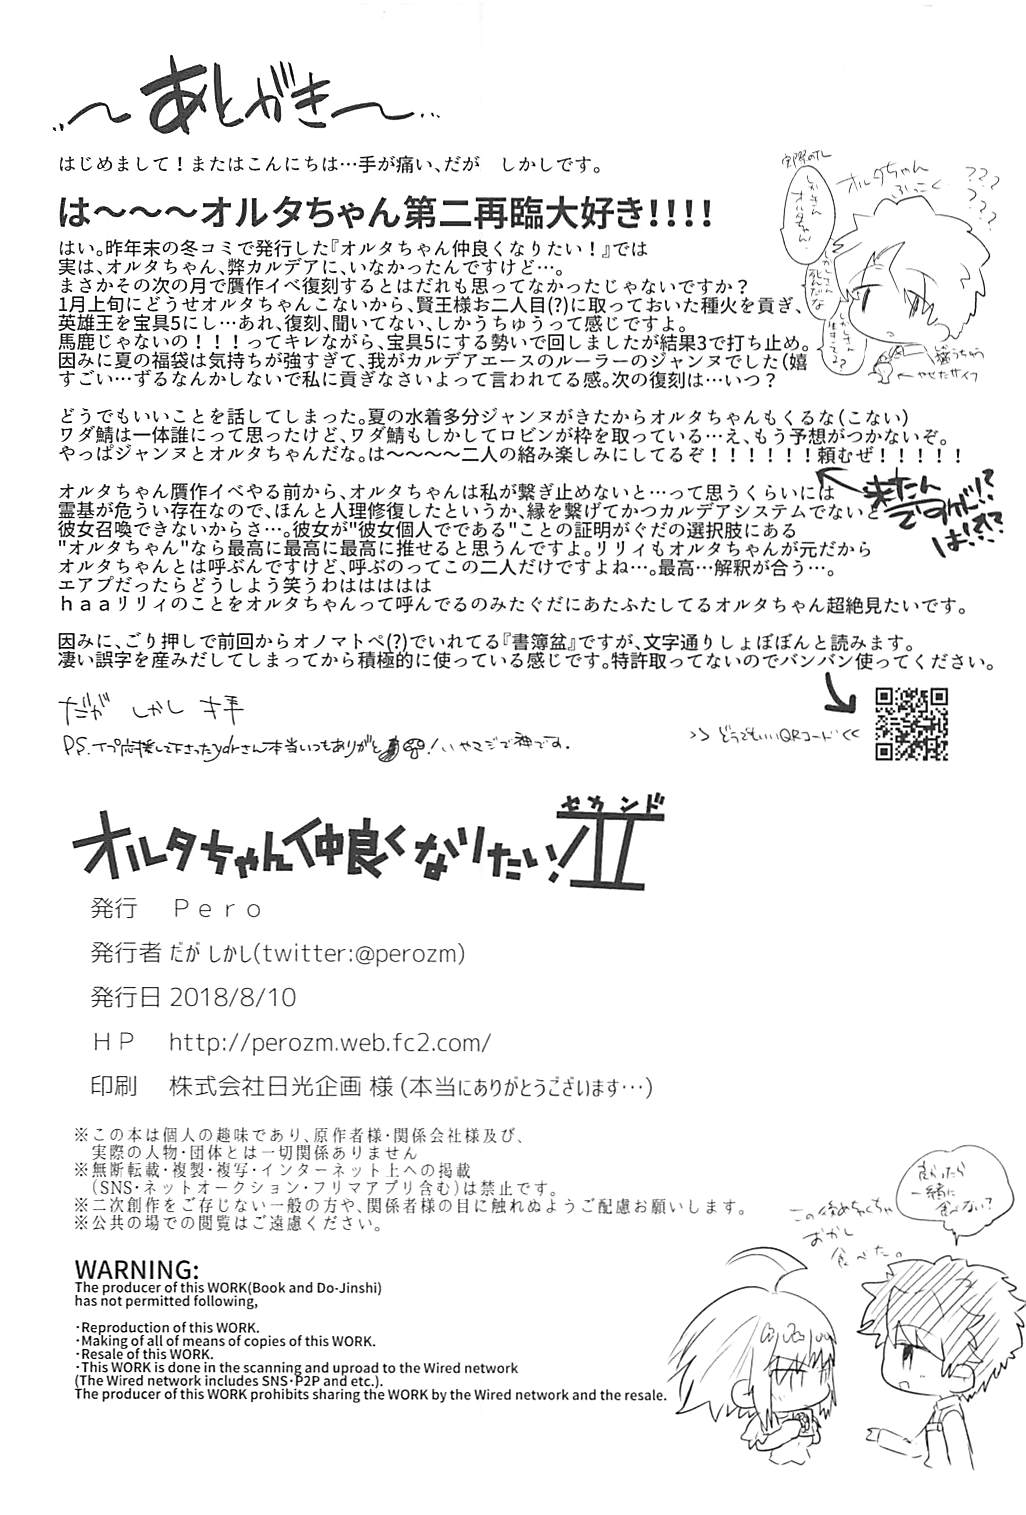 ～あとがき～
はじめまして！またはこんにちは…手が痛い、だが　しかしです。
は～～～オルタちゃん第二再臨大好き!!!!
はい。昨年末の冬コミで発行した『オルタちゃん仲良くなりたい！』では
実は、オルタちゃん、弊カルデアに、いなかったんですけど…。
まさかその次の月で贋作イベ復刻するとはだれも思ってなかったじゃないですか？
1月上旬にどうせオルタちゃんこないから、賢王様お二人目(?)に取っておいた種火を貢ぎ、
英雄王を宝具5にし…あれ、復刻、聞いてない、しかうちゅうって感じですよ。
馬鹿じゃないの！！！ってキレながら、宝具5にする勢いで回しましたが結果3で打ち止め。
因みに夏の福袋は気持ちが強すぎて、我がカルデアエースのルーラーのジャンヌでした(嬉
すごい…ずるなんかしないで私に貢ぎなさいよって言われてる感。次の復刻は…いつ？
どうでもいいことを話してしまった。夏の水着多分ジャンヌがきたからオルタちゃんもくるな(こない)
ワダ鯖は一体誰にって思ったけど、ワダ鯖もしかしてロビンが枠を取っている…え、もう予想がつかないぞ。
やっぱジャンヌとオルタちゃんだな。は～～～～二人の絡み楽しみにしてるぞ！！！！！！頼むぜ！！！！！
来たん
ですが!?
オルタちゃん贋作イベやる前から、オルタちゃんは私が繋ぎ止めないと…って思うくらいには
霊基が危うい存在なので、ほんと人理修復したというか、縁を繋げてかつカルデアシステムでないと
彼女召喚できないからさ…。彼女が"彼女個人でである"ことの証明がぐだの選択肢にある
"オルタちゃん"なら最高に最高に最高に推せると思うんですよ。リリィもオルタちゃんが元だから
オルタちゃんとは呼ぶんですけど、呼ぶのってこの二人だけですよね…。最高…解釈が合う…。
エアプだったらどうしよう笑うわははははは
ｈａａリリィのことをオルタちゃんって呼んでるのみたぐだにあたふたしてるオルタちゃん超絶見たいです。
因みに、ごり押しで前回からオノマトペ(?)でいれてる『書簿盆』ですが、文字通りしょぼぼんと読みます。
凄い誤字を産みだしてしまってから積極的に使っている感じです。特許取ってないのでバンバン使ってください。
だが　しかし　拝
P.S.イプ応援して下さったydrさん本当いつもありがと！いやマジで神です。
>>どうでもいいQRコード<<
オルタちゃん仲良くなりたい！II
セカンド
発行　Ｐｅｒｏ
発行者 だが しかし(twitter:@perozm)
発行日 2018/8/10
ＨＰ　http://perozm.web.fc2.com/
印刷　株式会社日光企画 様 (本当にありがとうございます…)
※この本は個人の趣味であり、原作者様・関係会社様及び、
実際の人物・団体とは一切関係ありません
※無断転載・複製・複写・インターネット上への掲載
(SNS・ネットオークション・フリマアプリ含む)は禁止です。
※二次創作をご存じない一般の方や、関係者様の目に触れぬようご配慮お願いします。
※公共の場での閲覧はご遠慮ください。
WARNING:
The producer of this WORK(Book and Do-Jinshi)
has not permitted following,
・Reproduction of this WORK.
・Making of all of means of copies of this WORK.
・Resale of this WORK.
・This WORK is done in the scanning and uproad to the Wired network
(The Wired network includes SNS・P2P and etc.).
The producer of this WORK prohibits sharing the WORK by the Wired network and the resale.
良かったら
一緒に
食べない？
この後めちゃくちゃ
おかし
食べた。